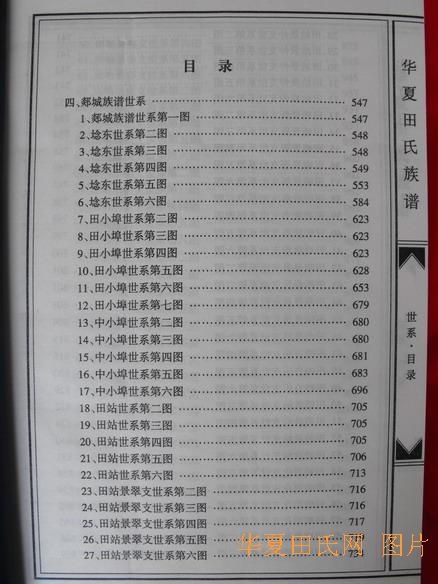 目 录
四、郯城族谱世系 547
1、郯城族谱世系第一图 547
2、埝东世系第二图 548
3、埝东世系第三图 548
4、埝东世系第四图 549
5、埝东世系第五图 553
6、埝东世系第六图 584
7、田小埠世系第二图 623
8、田小埠世系第三图 623
9、田小埠世系第四图 623
10、田小埠世系第五图 628
11、田小埠世系第六图 653
12、田小埠世系第七图 679
13、中小埠世系第二图 680
14、中小埠世系第三图 680
15、中小埠世系第四图 681
16、中小埠世系第五图 683
17、中小埠世系第六图 696
18、田站世系第二图 705
19、田站世系第三图 705
20、田站世系第四图 705
21、田站世系第五图 706
22、田站世系第六图 713
23、田站景翠支世系第二图 716
24、田站景翠支世系第三图 716
25、田站景翠支世系第四图 717
26、田站景翠支世系第五图
27、田站景翠支世系第六图 734
华夏田氏族谱
世系·目录
华夏田氏网 图片